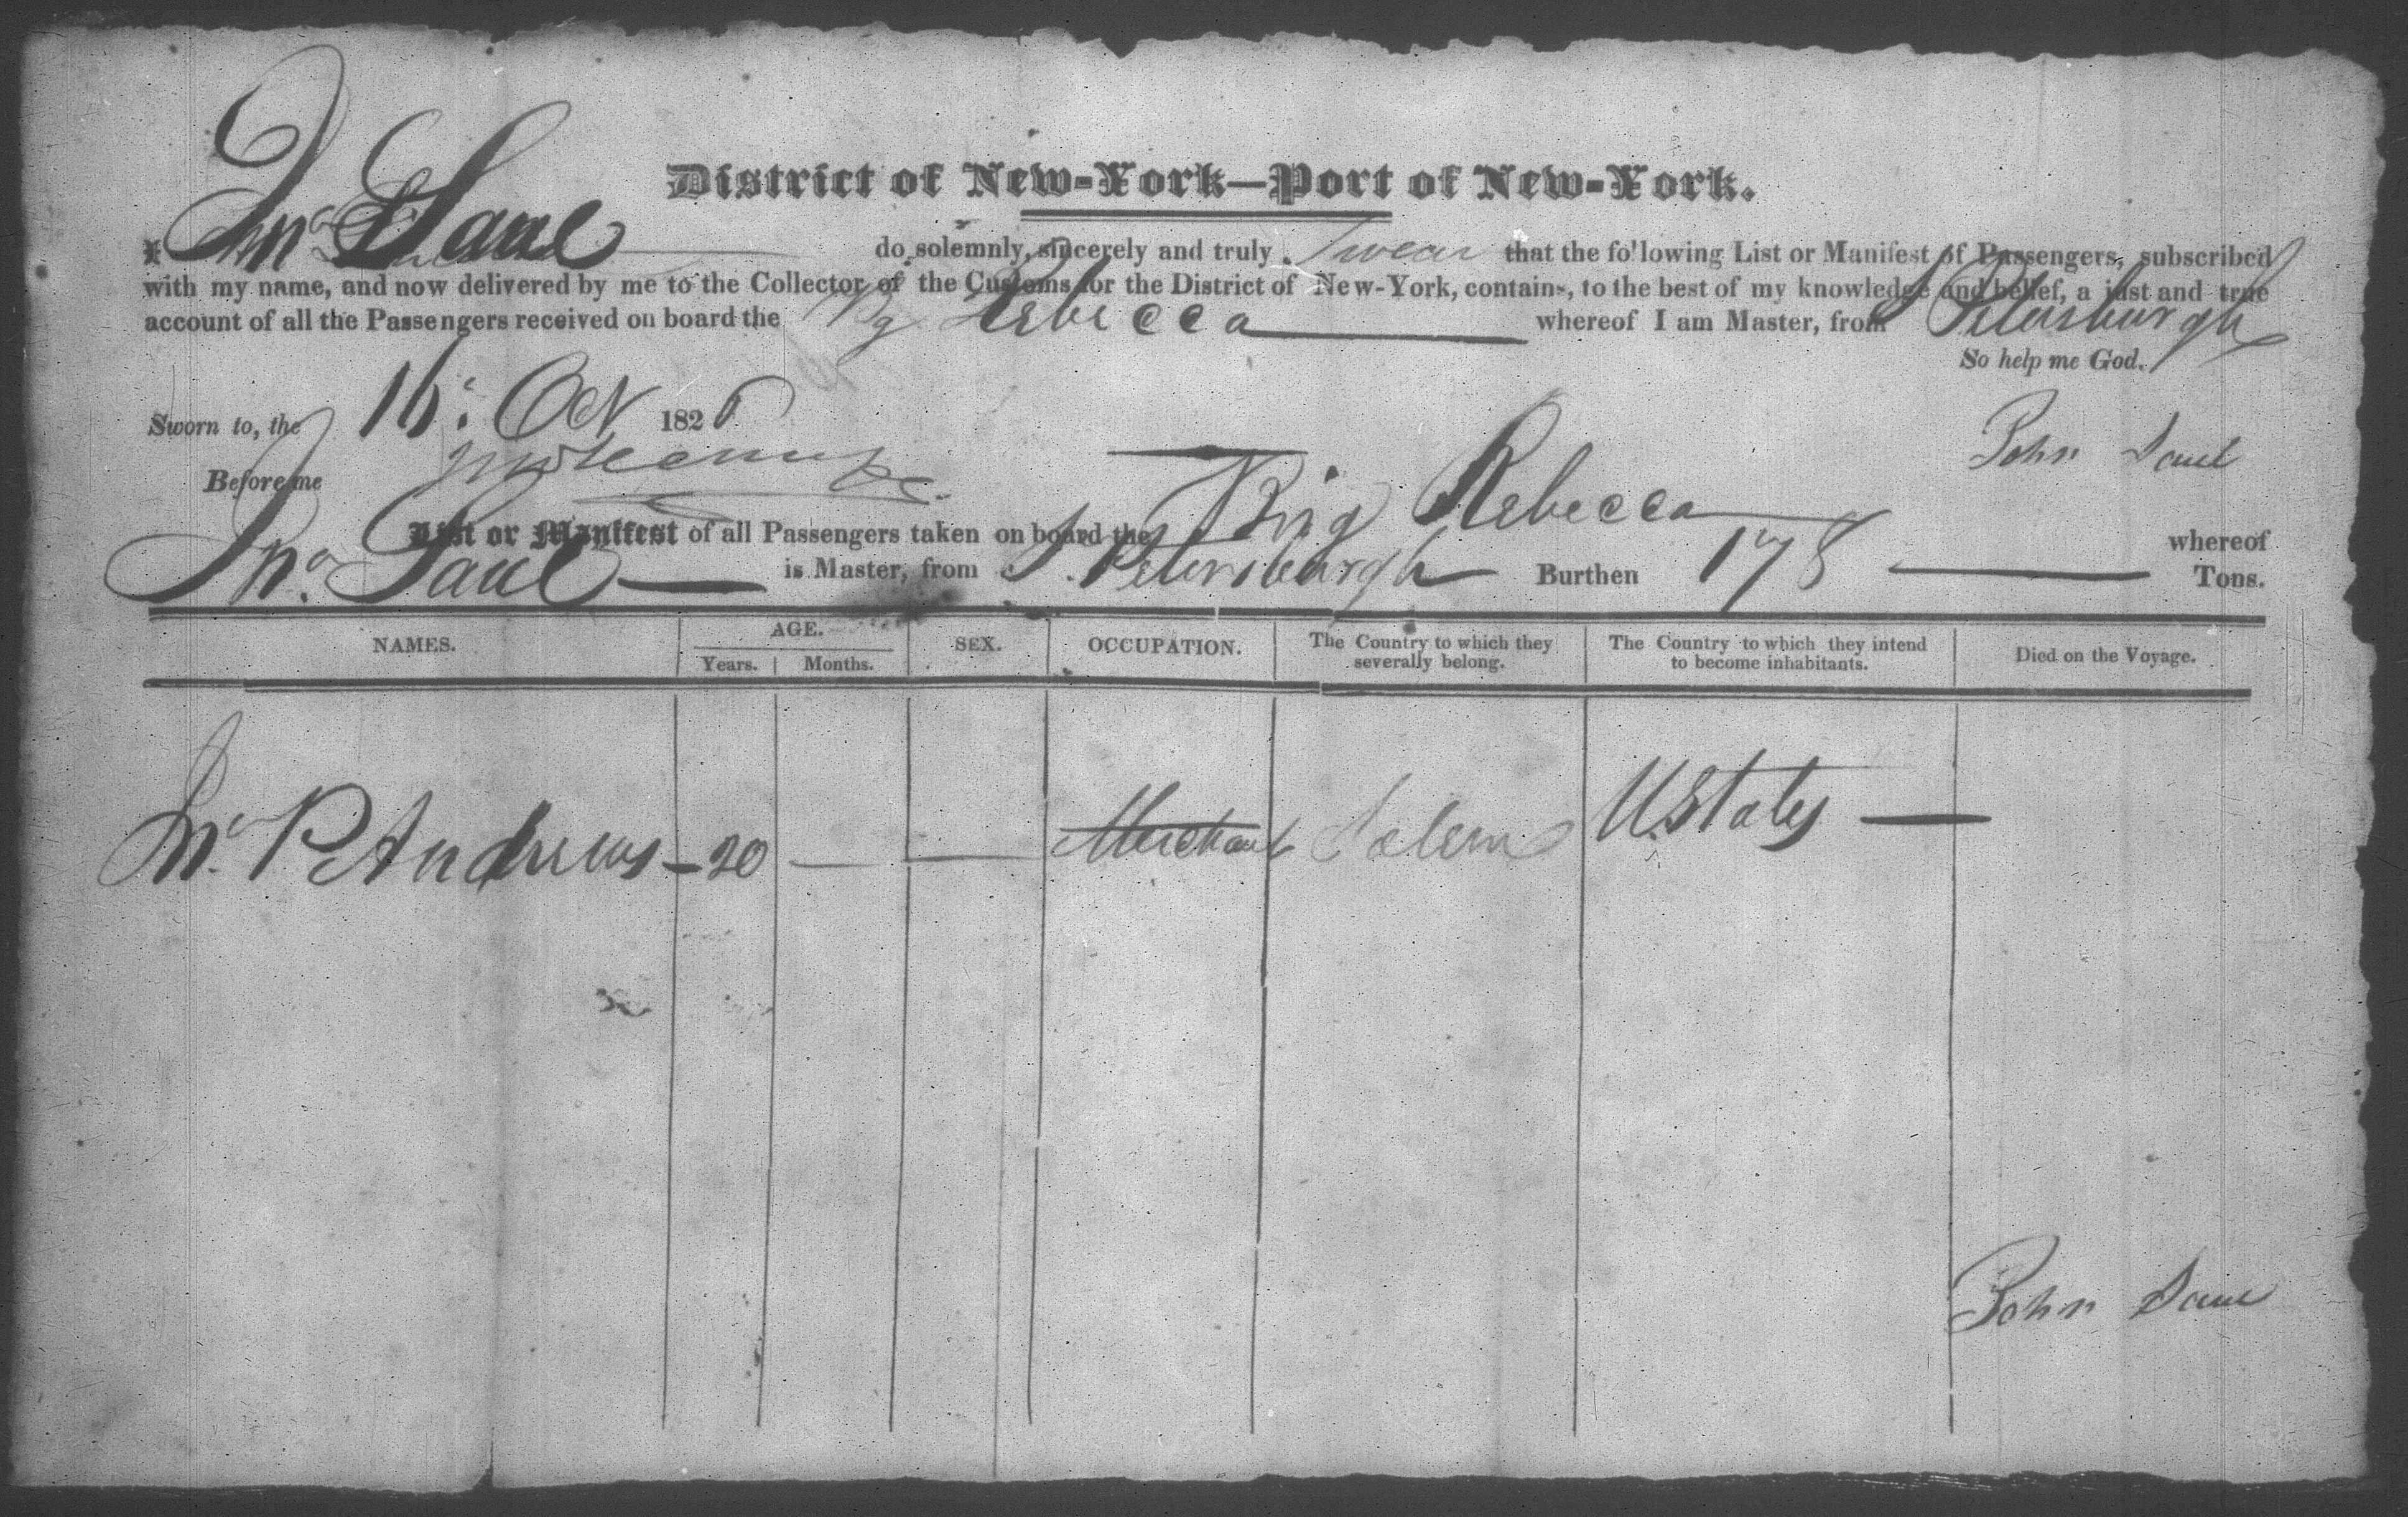 District of New-York—Port of New-York.
I, Jno Saul do solemnly, sincerely and truly Swear that the following List or Manifest of Passengers, subscribed
with my name, and now delivered by me to the Collector of the Customs for the District of New-York, contains, to the best of my knowledge and belief, a just and true
account of all the Passengers received on board the Bg Rebecca whereof I am Master, from St Petersburgh
So help me God.
Sworn to, the 16. Oct 1826
John Saul
Before me
List or Manifest of all Passengers taken on board the Brig Rebecca whereof
Jno. Saul is Master, from St. Petersburgh Burthen 178 Tons.
NAMES. AGE. SEX. OCCUPATION. The Country to which they severally belong. The Country to which they intend to become inhabitants. Died on the Voyage.
Years. Months.
Jno. P Andrews — 20 — — Merchant Salem U. States —
John Saul